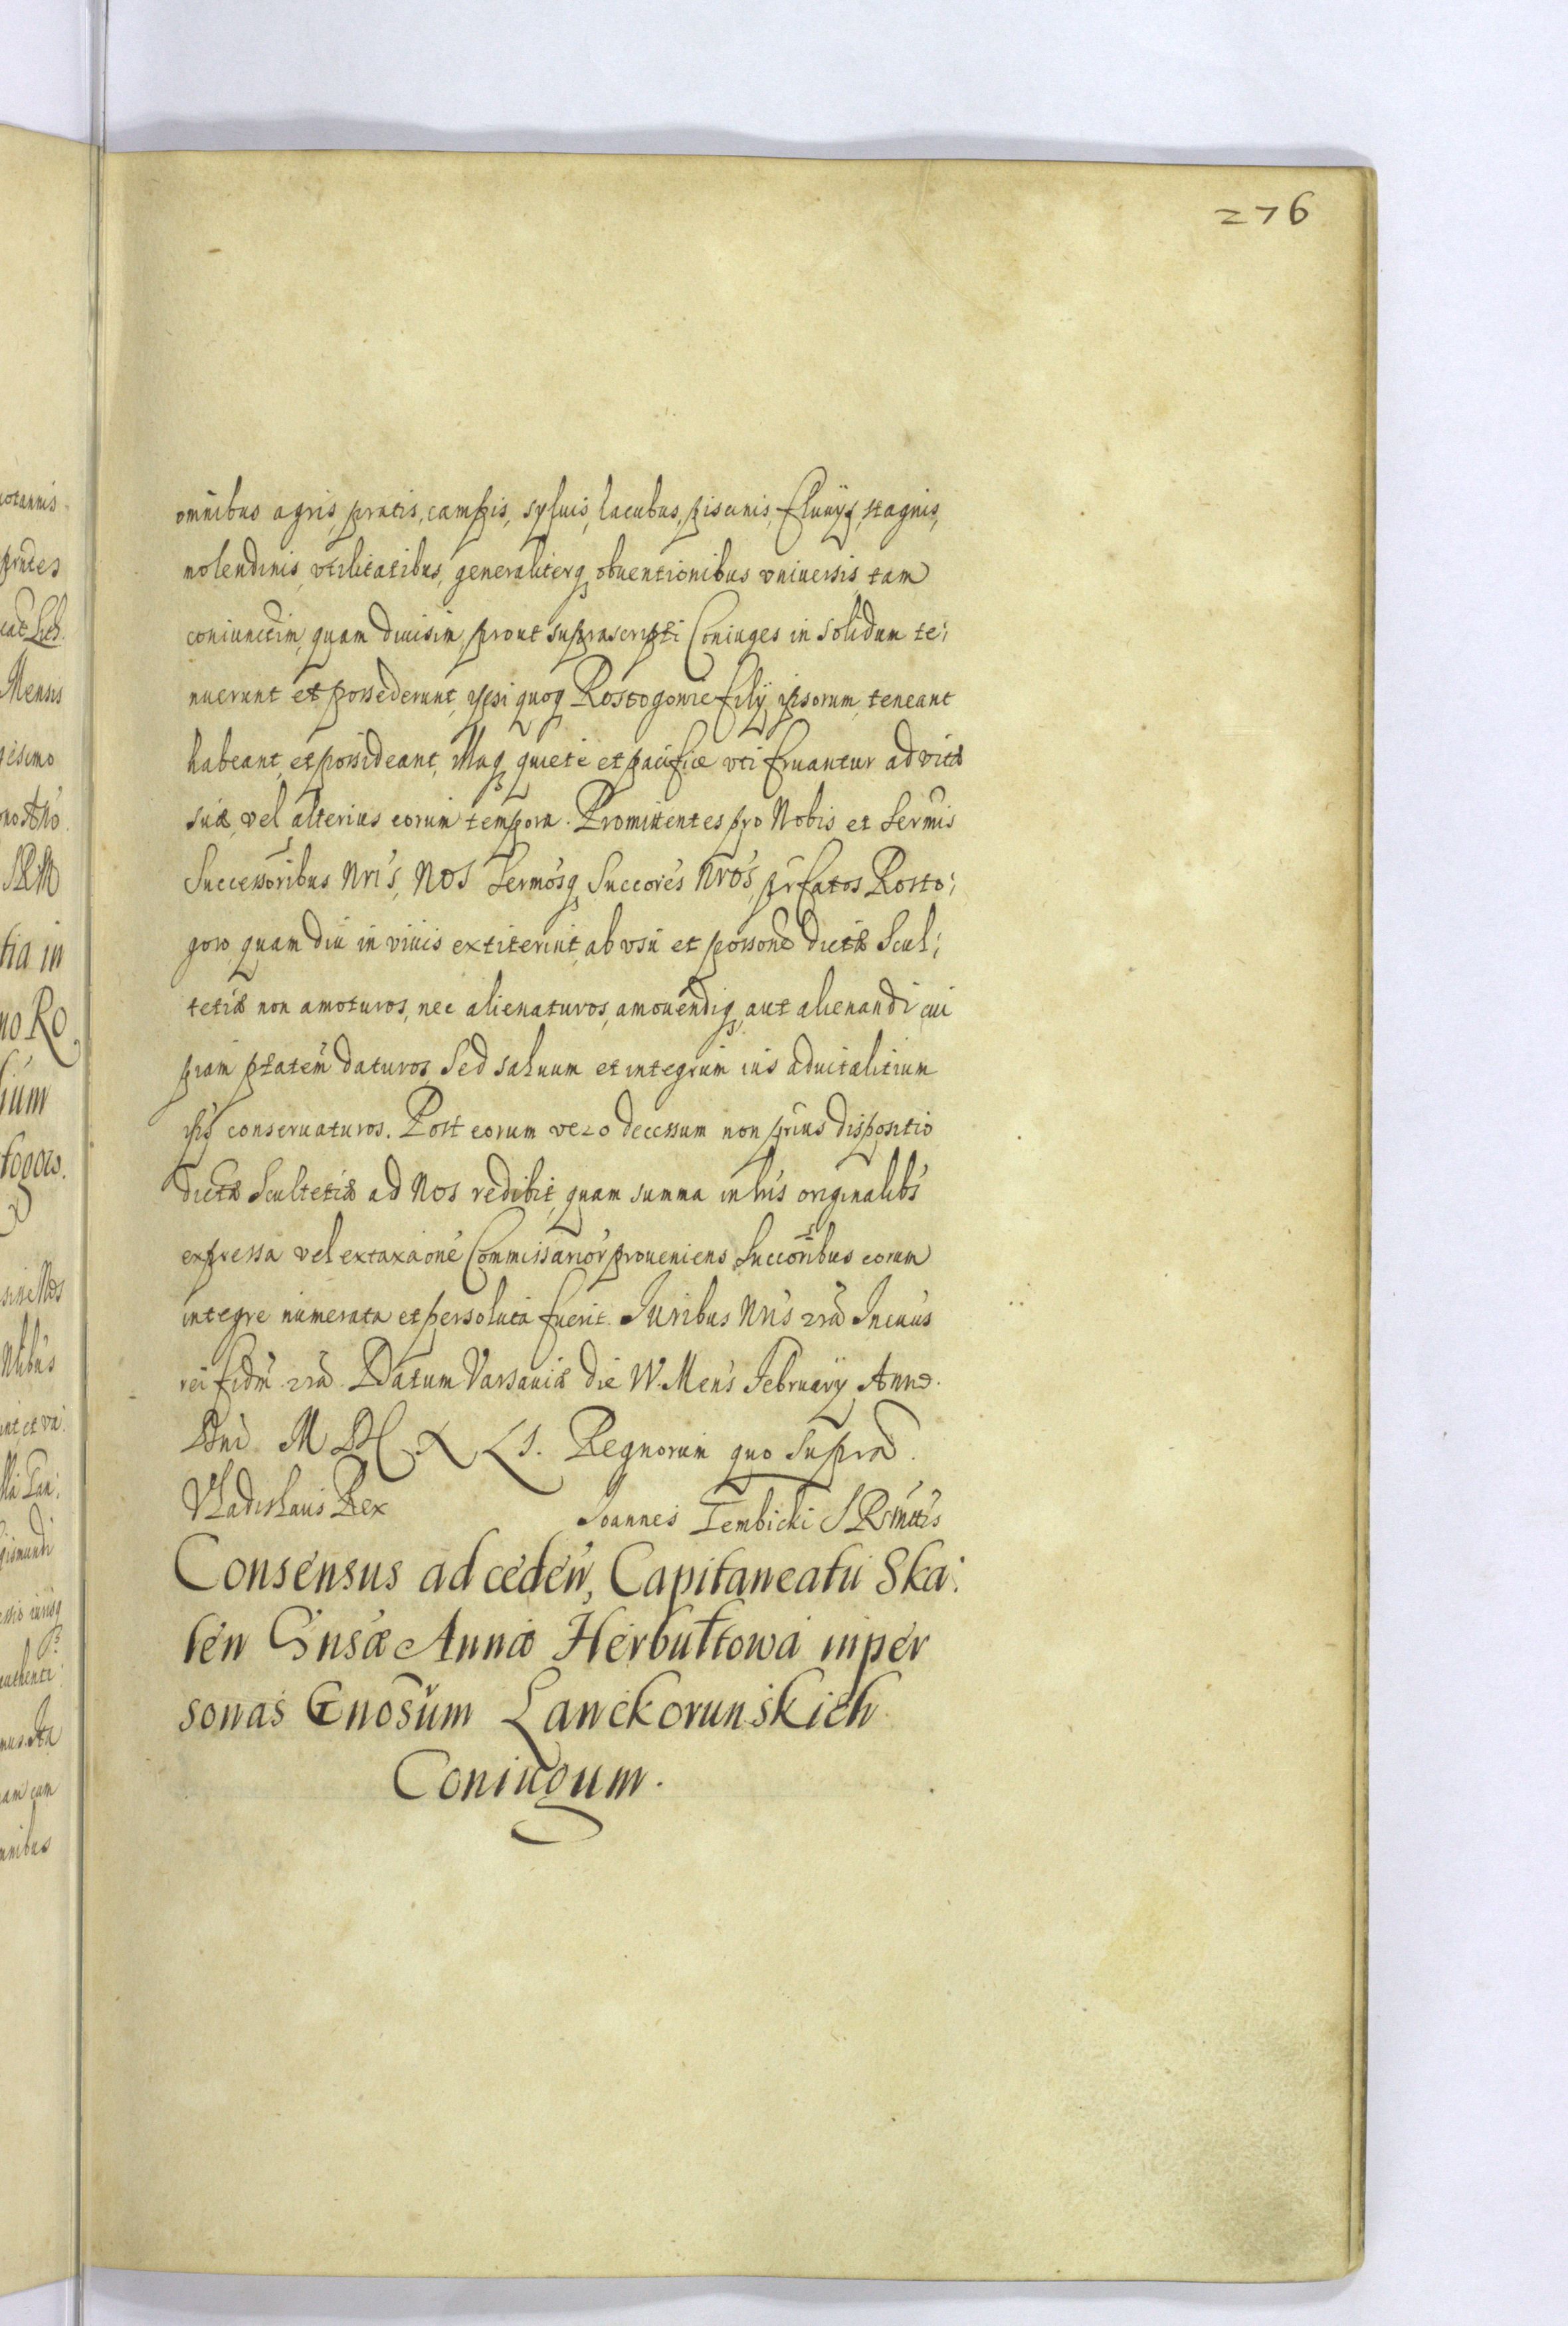 276
omnibus agris, pratis, campis, syluis, lacubus, piscinis, fluuÿs, stagnis,
molendinis, vtilitatibus, generaliterq obuentionibus vniuersis, tam
coniunctim, quam diuisim, prout suprascripti Coniuges in solidum te;
nuerunt et possederunt, ipsi quoq Rostogowie filÿ ipsorum, teneant
habeant, et possideant, illaq quiete et pacifice vti fruantur ad vitæ
suæ, vel alterius eorum tempora. Promittentes pro Nobis et Sermis
Successoribus Nris, Nos Sermosq Succores Nros, prfatos Rosto;
gow quam diu in viuis extiterint, ab vsu et possone dictæ Scul;
tetiæ non amoturos, nec alienaturos, amouendiq, aut alienandi cui
piam ptatem daturos, Sed saluum et integrum ius aduitalitium
ipis conseruaturos. Post eorum vero decessum non prius dispositio
dictæ Scultetiæ ad Nos redibit, quam summa in lris originalibs
expressa vel ex taxaone Commissarior proueniens Succoribus eorum
integre numerata et persoluta fuerit. Juribus Nris Jn cuius
rei fidm. Datum Varsauiæ die Mens Februarÿ Anno.
Dni M DC X L I. Regnorum quo supra.
Vladislaus Rex Joannes Gembicki S R Mttis
Consensus ad ceden, Capitaneatu Ska:
len Gnsæ Annæ Herbultowa in per
sonas Gnosum Lanckorunskich
Coniugum.